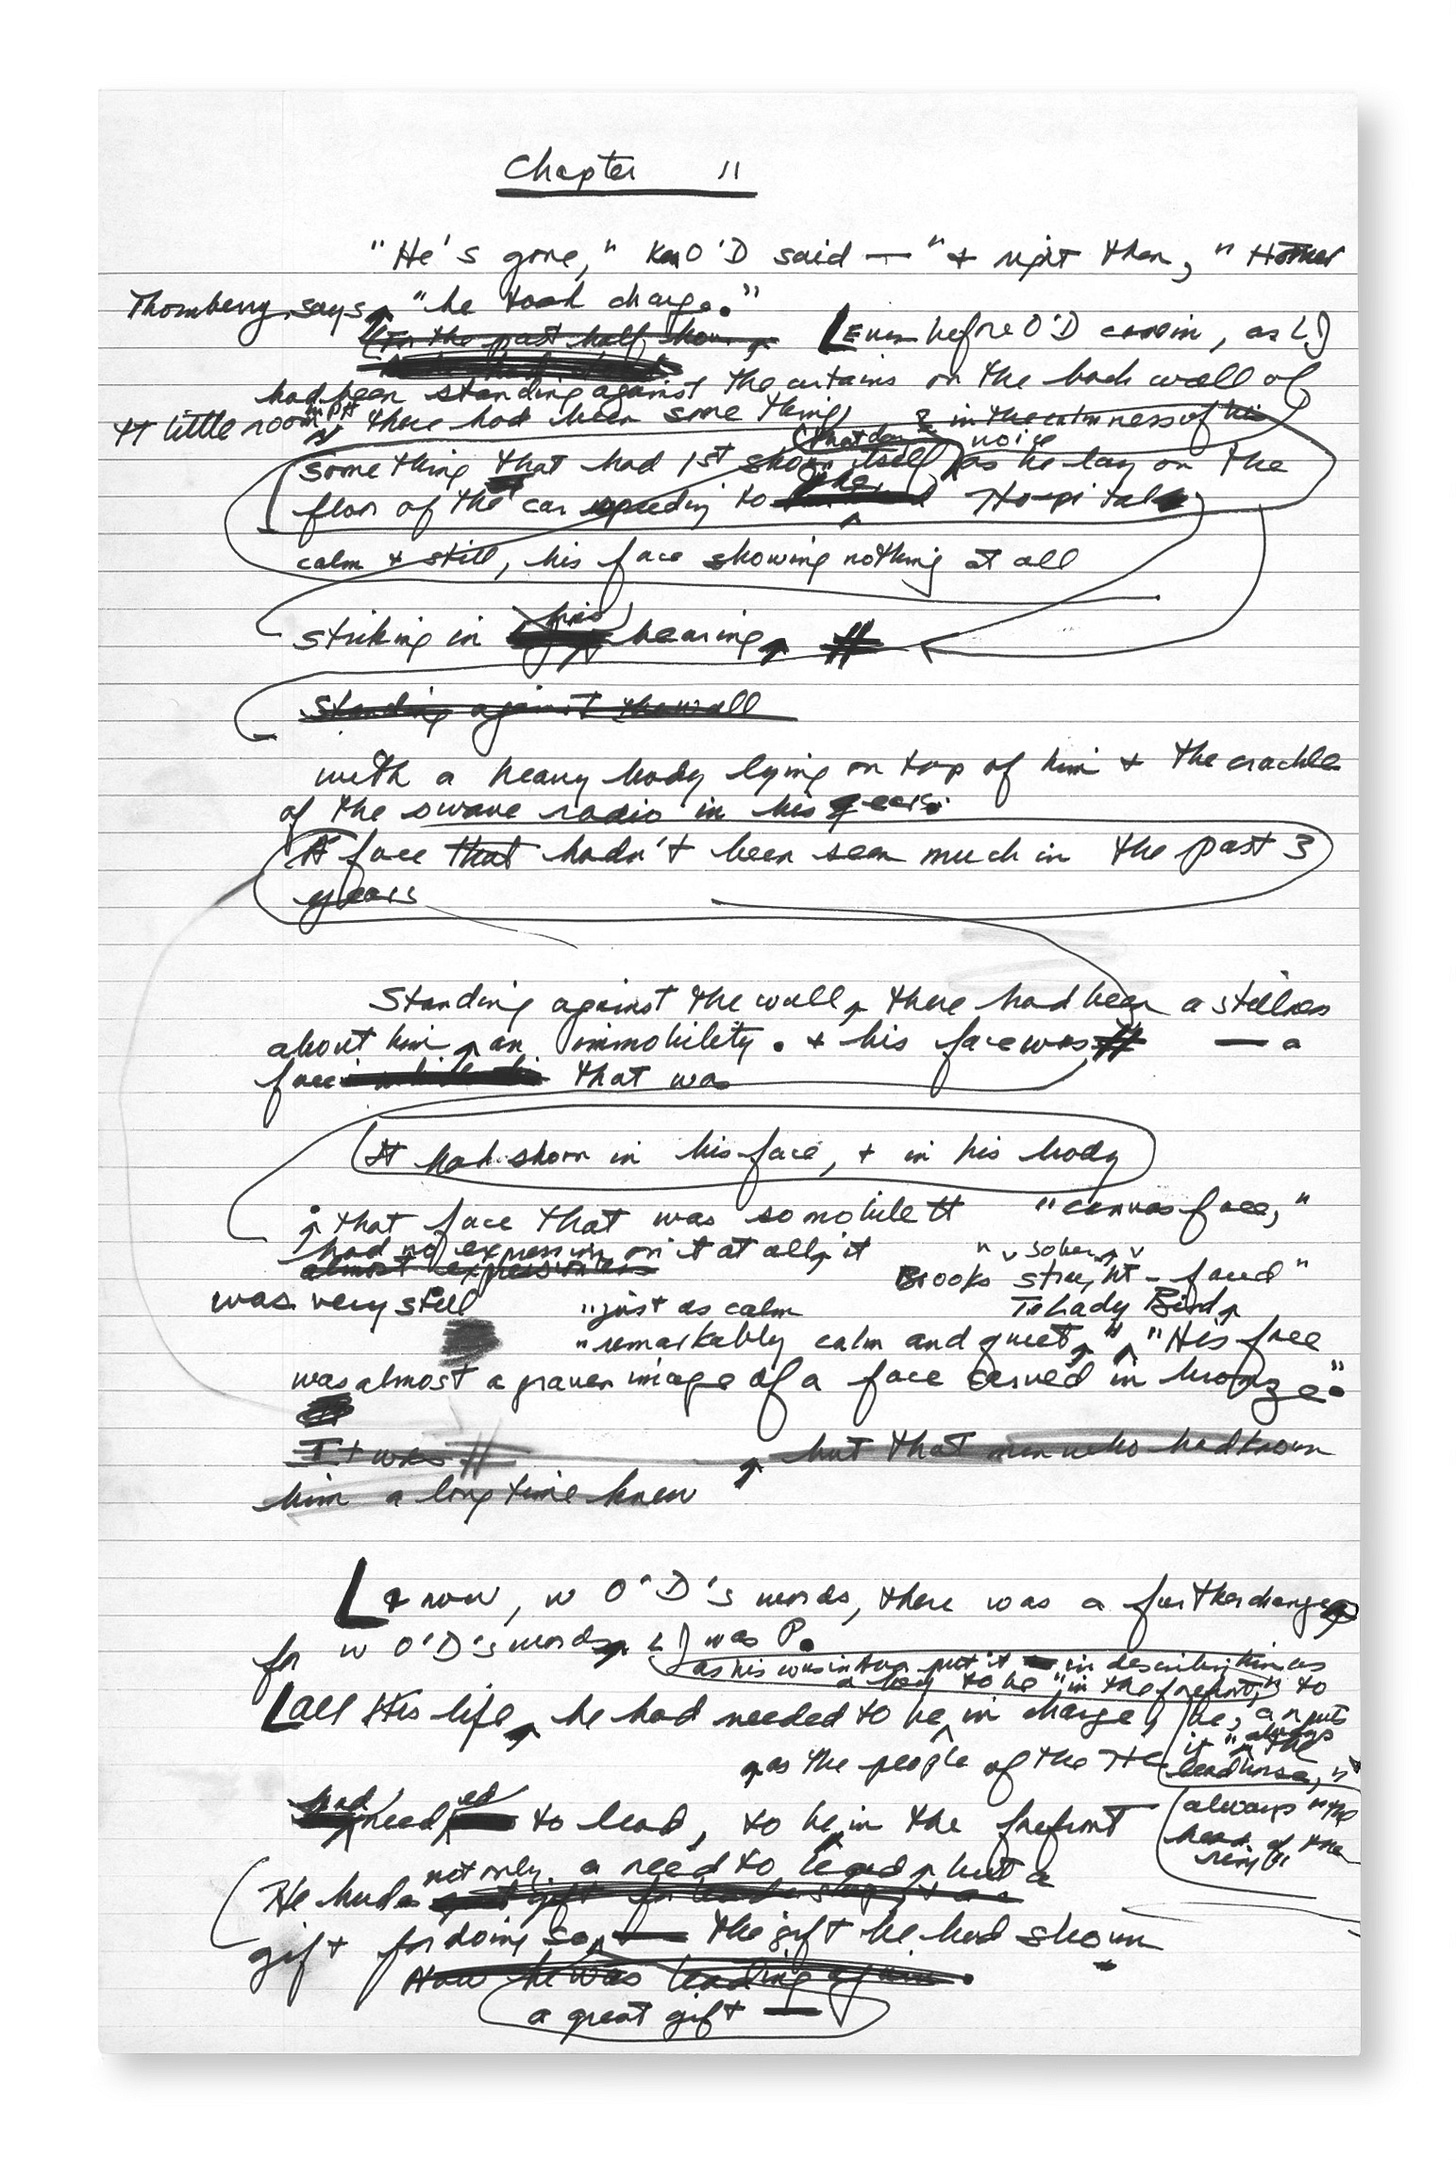 Chapter 11
"He's gone," Ken O'D said — "+ right then," Homer
Thornberry says, "he took charge."
In the past half hour,
Even before O'D came in, as LJ
had been standing against the curtains on the back wall of
tt little room in PH there had been something,
in the calmness of his
voice
something that had 1st shown itself as he lay on the
(that day
the
floor of the car speeding to Hospital
calm + still, his face showing nothing at all
his
striking in bearing, #
Standing against the wall
with a heavy body lying on top of him + the crackle
of the swave radio in his ears.
A face that hadn't been seen much in the past 3
years
Standing against the wall, there had been a stillness
about him, an immobility. + his face was # — a
face that was
It had shown in his face, + in his body
, that face that was so mobile tt "canvas face,"
had no expression on it at all, it
almost expressionless
"sober,
Brooks straight-faced"
was very still
"just as calm
To Lady Bird,
"remarkably calm and quiet," "His face
was almost a graven image of a face carved in bronze."
It was #
, but that men who had known
him a long time knew
& now, w O'D's words, there was a further change
for w O'D's words, LJ was P.
as his cousin Ava put it in describing him as
a boy to be "in the forefront," to
All His life, he had needed to be in charge,
be, as puts
it "always
the
lead horse,"
, as the people of the H
always "the
head of the
ring"
had need ed to lead, to be in the forefront
not only a need to lead, but a
He had a great gift for leadership, it was a
gift for doing so, — the gift he had shown
Now he was leading again.
a great gift —